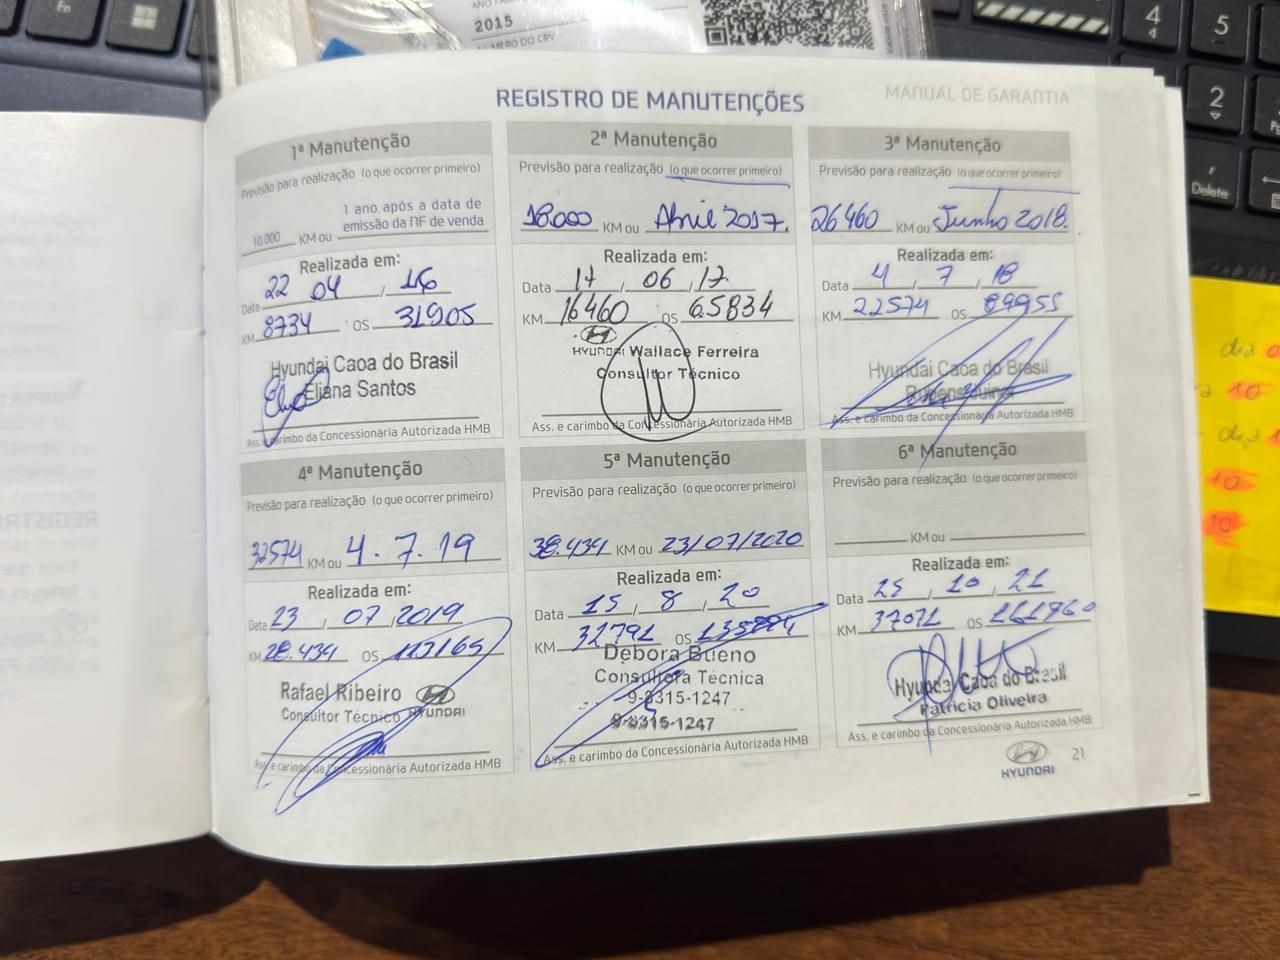 2015
NÚMERO DO CRV
REGISTRO DE MANUTENÇÕES
MANUAL DE GARANTIA
1ª Manutenção
Previsão para realização (o que ocorrer primeiro)
10.000 KM ou 1 ano, após a data de
emissão da NF de venda
Realizada em:
Data 22 04 , 16
KM 8734 OS 31905
Hyundai Caoa do Brasil
Eliana Santos
Ass. e carimbo da Concessionária Autorizada HMB
2ª Manutenção
Previsão para realização (o que ocorrer primeiro)
18.000 KM ou Abril 2017.
Realizada em:
Data 17 , 06 , 17
KM 16460 OS 65834
HYUNDAI Wallace Ferreira
Consultor Técnico
Ass. e carimbo da Concessionária Autorizada HMB
3ª Manutenção
Previsão para realização (o que ocorrer primeiro)
26460 KM ou Junho 2018.
Realizada em:
Data 4 , 7 , 18
KM 22574 OS 89955
Hyundai Caoa do Brasil
Ass. e carimbo da Concessionária Autorizada HMB
4ª Manutenção
Previsão para realização (o que ocorrer primeiro)
32574 KM ou 4.7.19
Realizada em:
Data 23 , 07 , 2019
KM 28.434 OS 113165
Rafael Ribeiro
Consultor Técnico HYUNDAI
Ass. e carimbo da Concessionária Autorizada HMB
5ª Manutenção
Previsão para realização (o que ocorrer primeiro)
38.434 KM ou 23/07/2020
Realizada em:
Data 15 , 8 , 20
KM 32791 OS
Débora Bueno
Consultora Técnica
9-8315-1247
9-8315-1247
Ass. e carimbo da Concessionária Autorizada HMB
6ª Manutenção
Previsão para realização (o que ocorrer primeiro)
KM ou
Realizada em:
Data 25 , 10 , 21
KM 37071 OS 161960
Hyundai Caoa do Brasil
Patricia Oliveira
Ass. e carimbo da Concessionária Autorizada HMB
HYUNDAI
21
Fn
4
5
2
Delete
dia
10
dia 1
10
10